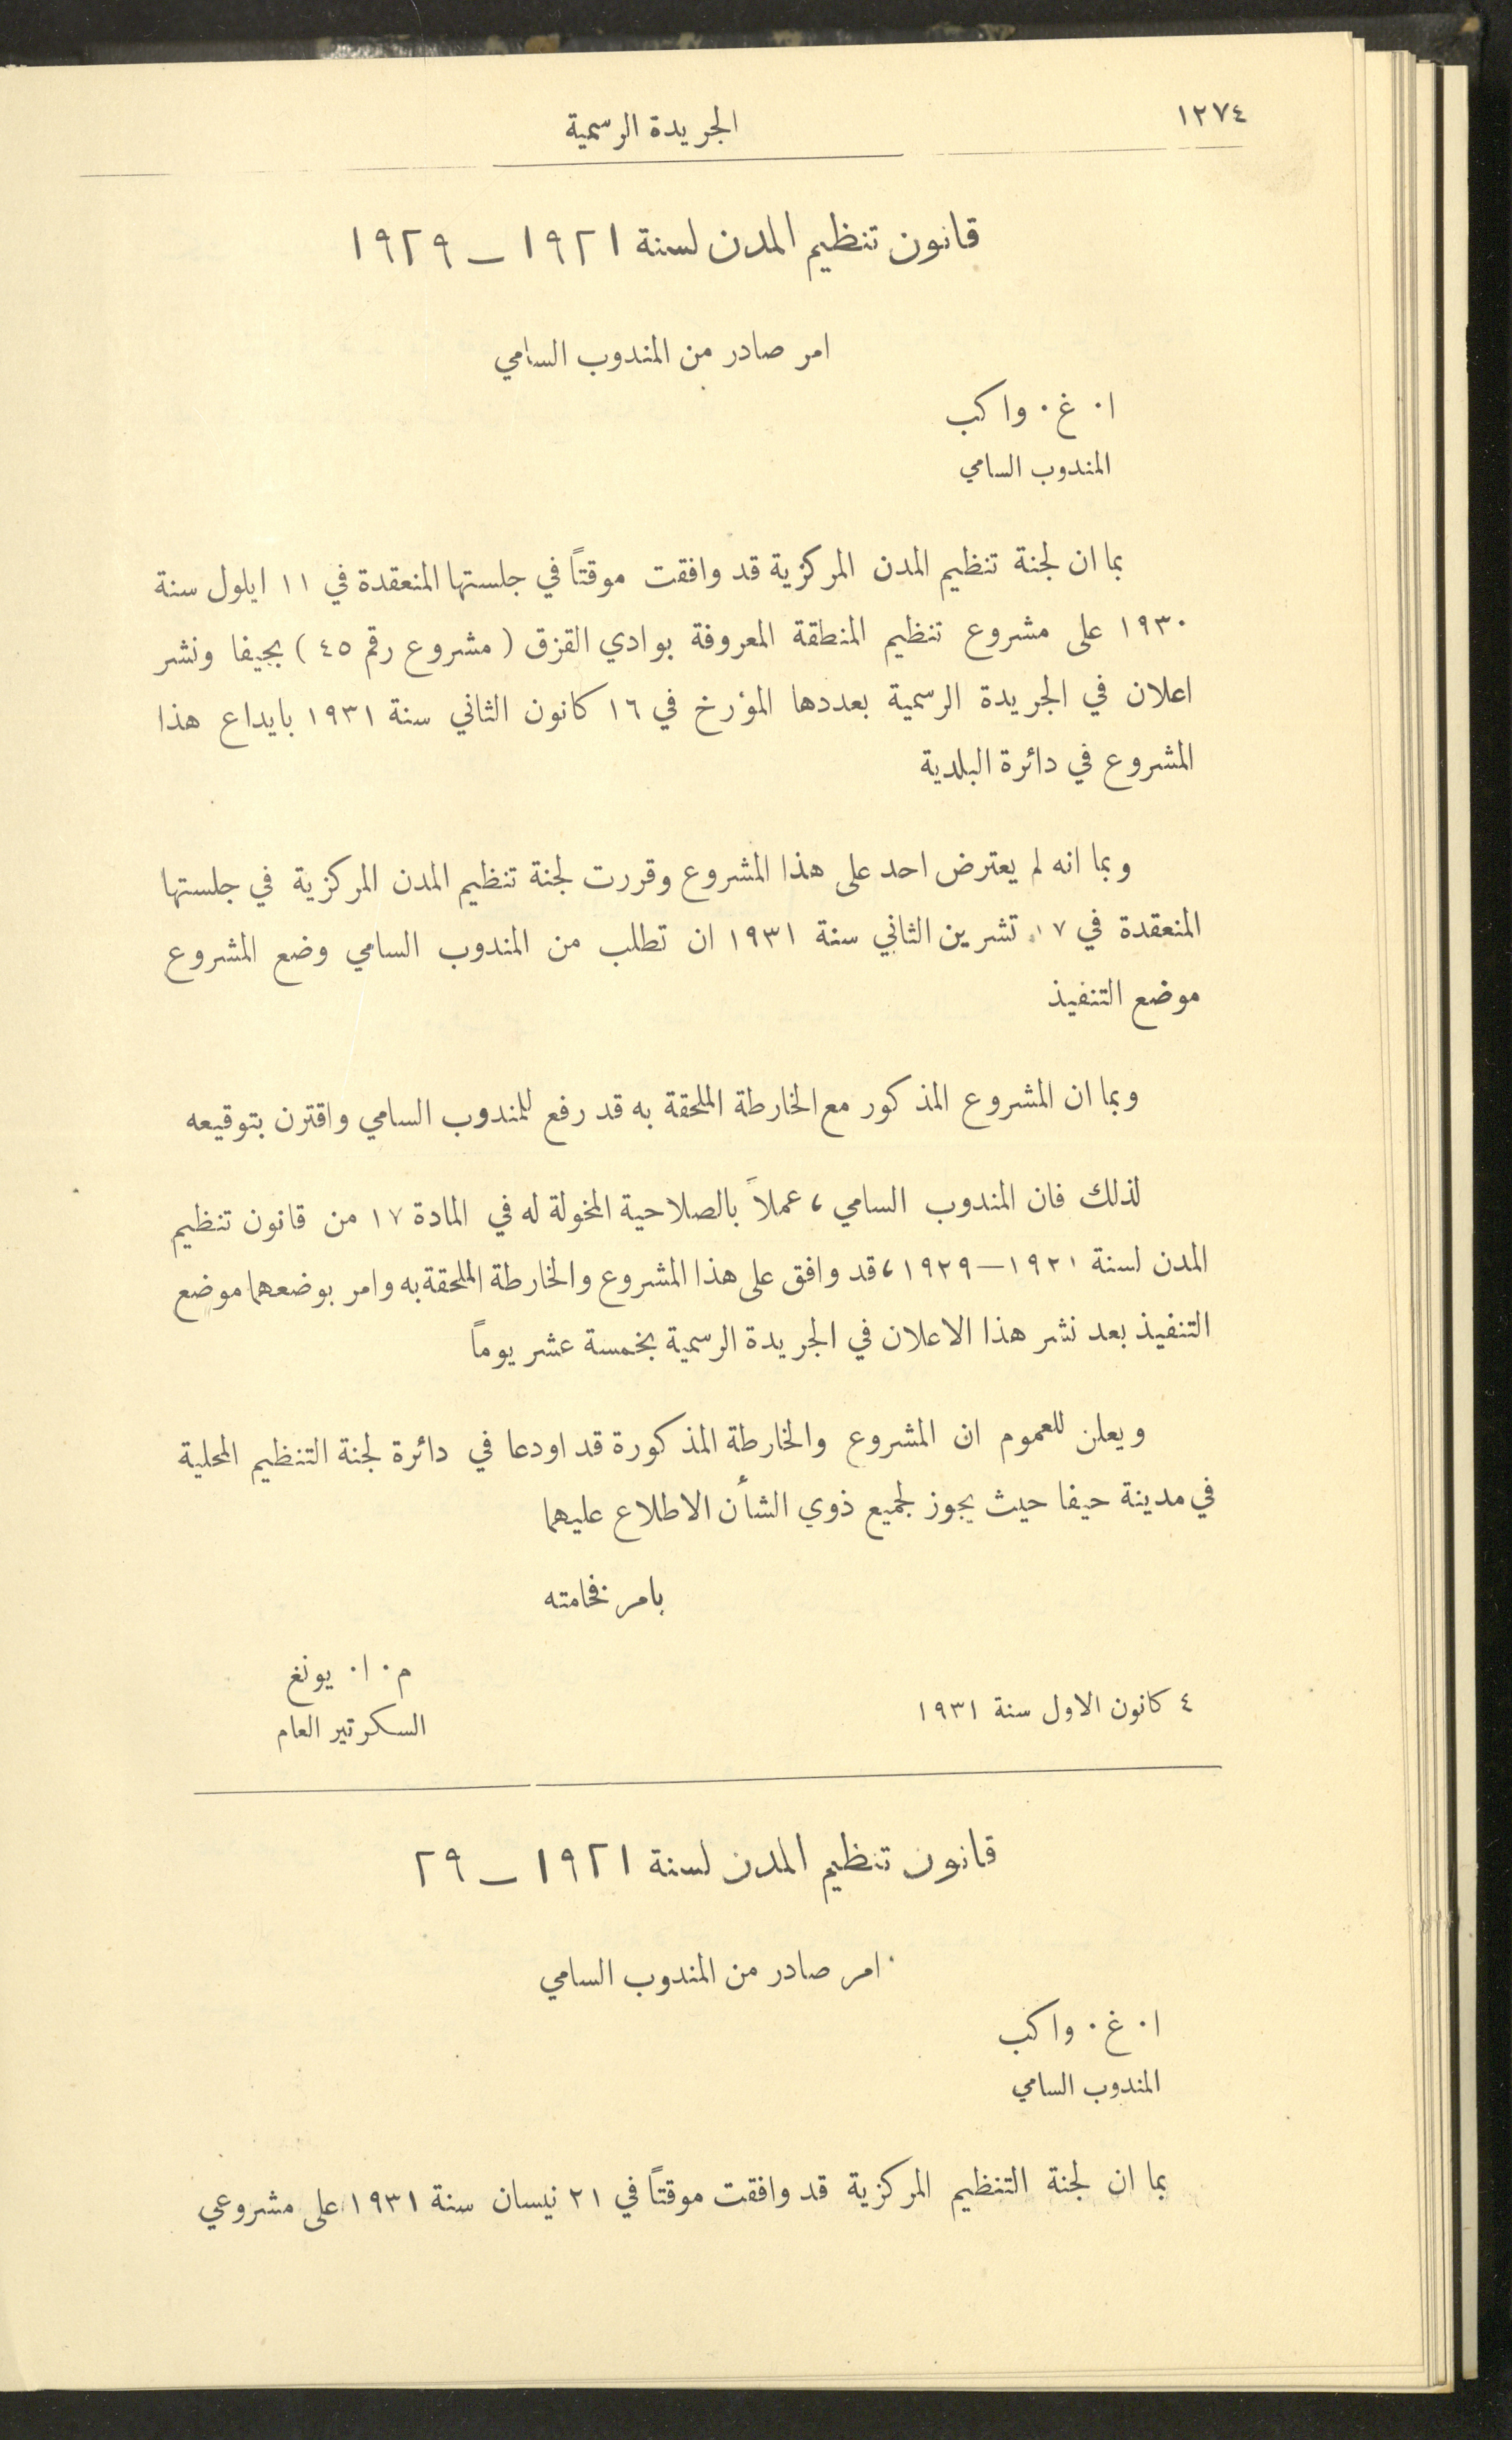 ١٢٧٤
الجريدة الرسمية
قانون تنظيم المدن لسنة ١٩٢١ ــ ١٩٢٩
امر صادر من المندوب السامي
ا٠ غ٠ واكب
المندوب السامي
بما ان لجنة تنظيم المدن المركزية قد وافقت موقتاً في جلستها المنعقدة في ١١ ايلول سنة
١٩٣٠ على مشروع تنظيم المنطقة المعروفة بوادي القزق ( مشروع رقم ٤٥ ) بحيفا ونشر
اعلان في الجريدة الرسمية بعددها المؤرخ في ١٦ كانون الثاني سنة ١٩٣١ بايداع هذا
المشروع في دائرة البلدية
وبما انه لم يعترض احد على هذا المشروع وقررت لجنة تنظيم المدن المركزية في جلستها
المنعقدة في ١٧ تشرين الثاني سنة ١٩٣١ ان تطلب من المندوب السامي وضع المشروع
موضع التنفيذ
وبما ان المشروع المذكور مع الخارطة الملحقة به قد رفع للمندوب السامي واقترن بتوقيعه
لذلك فان المندوب السامي، عملاً بالصلاحية المخولة له في المادة ١٧ من قانون تنظيم
المدن لسنة ١٩٢١–١٩٢٩، قد وافق على هذا المشروع والخارطة الملحقة به وامر بوضعهما موضع
التنفيذ بعد نشر هذا الاعلان في الجريدة الرسمية بخمسة عشر يوماً
ويعلن للعموم ان المشروع والخارطة المذكورة قد اودعا في دائرة لجنة التنظيم المحلية
في مدينة حيفا حيث يجوز لجميع ذوي الشأن الاطلاع عليهما
بامر فخامته
م٠ ا٠ يونغ
٤ كانون الاول سنة ١٩٣١
السكرتير العام
قانون تنظيم المدن لسنة ١٩٢١ ــ ٢٩
امر صادر من المندوب السامي
ا٠ غ٠ واكب
المندوب السامي
بما ان لجنة التنظيم المركزية قد وافقت موقتاً في ٢١ نيسان سنة ١٩٣١ على مشروعي